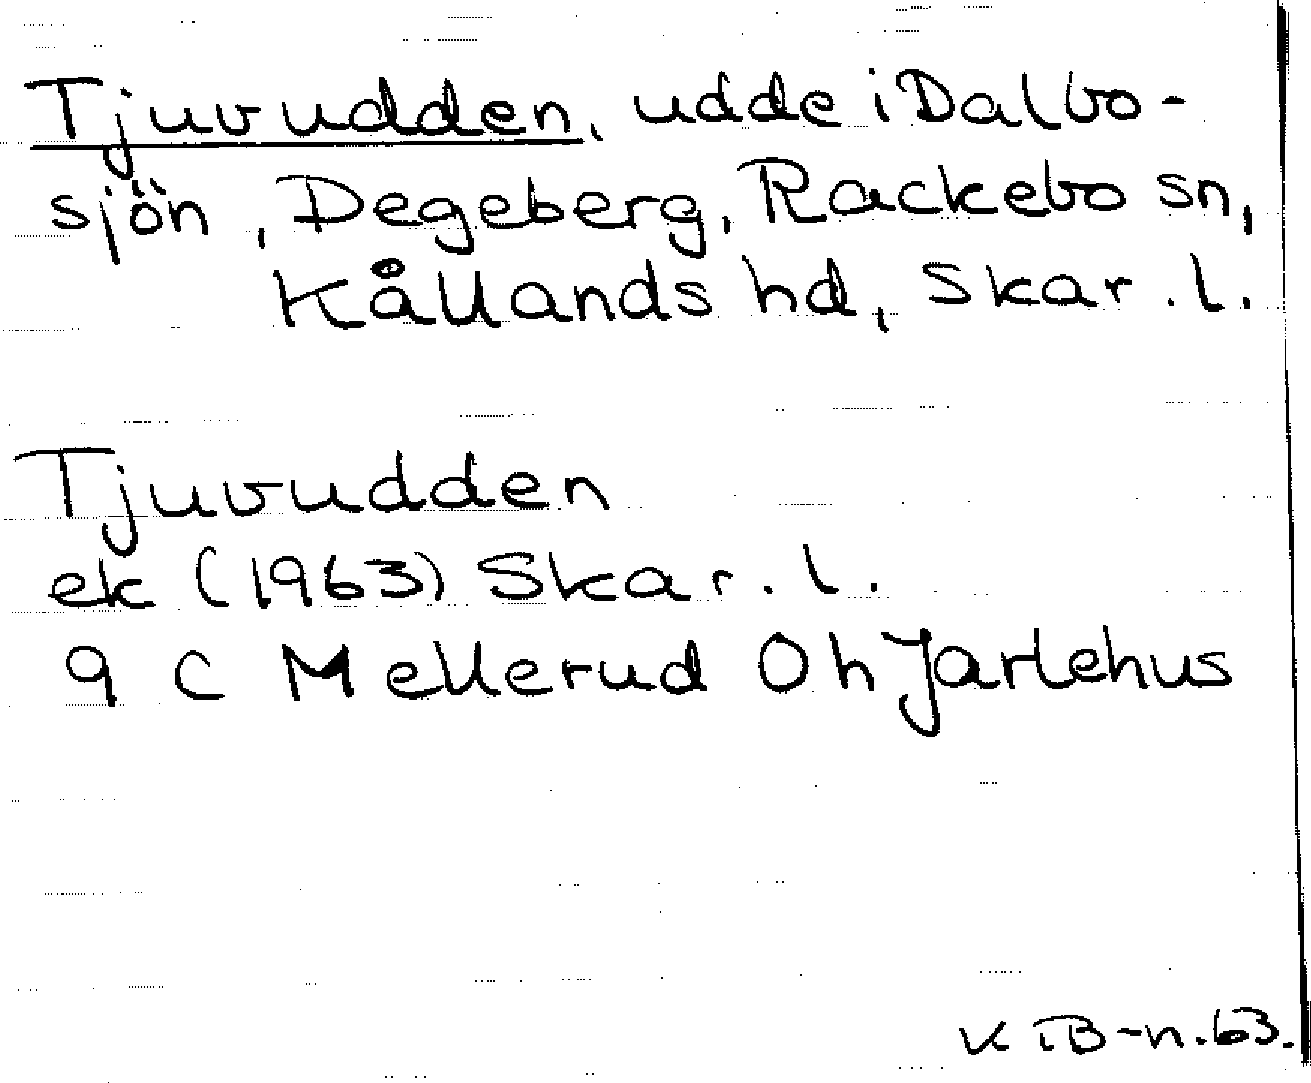 Tjuvudden, udde i Dalbo-
sjön, Degeberg, Rackebo sn,
Kållands hd, Skar. l.
Tjuvudden
ek (1963) Skar. l.
9 C Mellerud Oh Jarlehus
K TB-n.63.